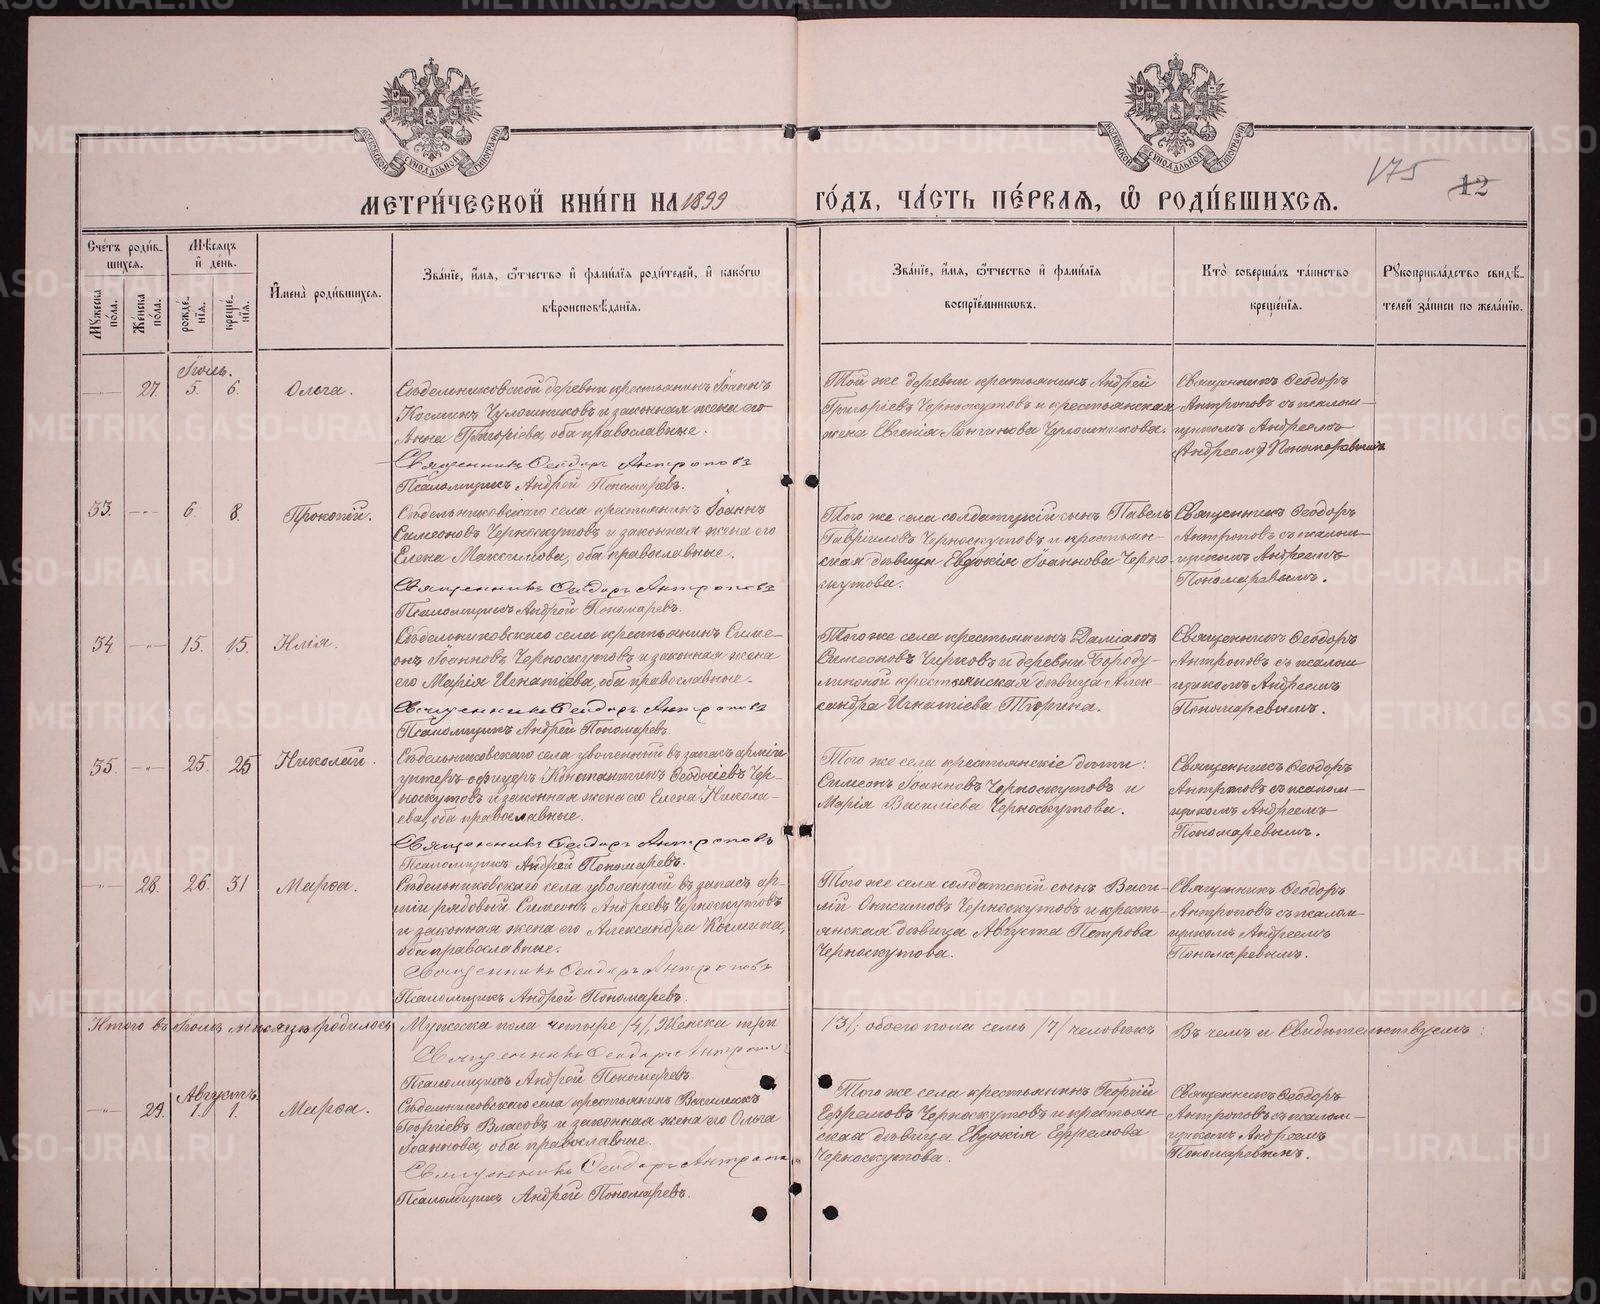 МЕТРИ́ЧЕСКОЙ КНИ́ГИ НА 1899 ГО́ДЪ, ЧА́СТЬ ПЕ́РВАЯ, Ѡ РОДИ́ВШИХСЯ.
175 12
Сче́тъ роди́вшихся.
Му́жеска по́ла.
Же́нска по́ла.
Мѣ́сяцъ и де́нь.
рожде́нїя.
креще́нїя.
И҆мена̀ роди́вшихся.
Зва́нїе, и҆́мя, ѻ҆́тчество и҆ фами́лїя роди́телей, и҆ како́гѡ
вѣроисповѣ́данїя.
Зва́нїе, и҆́мя, ѻ҆́тчество и҆ фами́лїя
воспрїе́мникѡвъ.
Кто̀ соверша́лъ та́инство
креще́нїя.
Рꙋкоприкла́дство свидѣ́-
телей за́писи по жела́нїю.
Іюль.
27. 5. 6. Ольга.
Сѣдельниковской деревни крестьянинъ Іоаннъ
Косминъ Чулошниковъ и законная жена его
Анна Григоріева, оба православные.
Священникъ Ѳеодоръ Антроповъ
Псаломщикъ Андрей Пономаревъ.
Той же деревни крестьянинъ Андрей
Григоріевъ Черноскутовъ и крестьянская
жена Евгенія Лонгинова Чулошникова.
Священникъ Ѳеодоръ
Антроповъ съ псалом-
щикомъ Андреемъ
(Андреемъ) Пономаревымъ
33. 6 8. Прокопій.
Сѣдельниковскаго села крестьянинъ Іоаннъ
Симеоновъ Черноскутовъ и законная жена его
Елена Максимова, оба православные.
Священникъ Ѳеодоръ Антроповъ
Псаломщикъ Андрей Пономаревъ.
Того же села солдатскій сынъ Павелъ
Гавріиловъ Черноскутовъ и крестьян-
ская дѣвица Евдокія Іоаннова Черно-
скутова.
Священникъ Ѳеодоръ
Антроповъ съ псалом-
щикомъ Андреемъ
Пономаревымъ.
34 15. 15. Илія.
Сѣдельниковскаго села крестьянинъ Симе-
онъ Іоанновъ Черноскутовъ и законная жена
его Марія Игнатіева, оба православные.
Священникъ Ѳеодоръ Антроповъ
Псаломщикъ Андрей Пономаревъ.
Того же села крестьянинъ Даміанъ
Симеоновъ Чирковъ и деревни Бороду-
линской крестьянская дѣвица Алек-
сандра Игнатіева Тюрина.
Священникъ Ѳеодоръ
Антроповъ съ псалом
щикомъ Андреемъ
Пономаревымъ.
35. 25. 25 Николай.
Сѣдельниковскаго села уволенный въ запасъ арміи
унтеръ офицеръ Константинъ Ѳеодосіевъ Чер-
носкутовъ и законная жена его Елена Никола-
ева, оба православные.
Священникъ Ѳеодоръ Антроповъ
Псаломщикъ Андрей Пономаревъ.
Того же села крестьянскіе дѣти:
Симеонъ Іоанновъ Черноскутовъ и
Марія Василіева Черноскутова.
Священникъ Ѳеодоръ
Антроповъ съ псалом-
щикомъ Андреемъ
Пономаревымъ.
28. 26. 31 Марѳа.
Сѣдельниковскаго села уволенный въ запасъ ар-
міи рядовой Симеонъ Андреевъ Черноскутовъ
и законная жена его Александра Космина,
оба православные.
Священникъ Ѳеодоръ Антроповъ
Псаломщикъ Андрей Пономаревъ.
Того же села солдатскій сынъ Васи-
лій Онисимовъ Черноскутовъ и кресть-
янская дѣвица Августа Петрова
Черноскутова.
Священникъ Ѳеодоръ
Антроповъ съ псалом-
щикомъ Андреемъ
Пономаревымъ.
Итого въ Іюлѣ мѣсяцѣ родилось Мужеска пола четыре /4/, Женска три /3/; обоего пола семь /7/ человѣкъ Въ чемъ и Свидѣтельствуемъ:
Священникъ Ѳеодоръ Антропов
Псаломщикъ Андрей Пономаревъ.
Августъ.
29. 1. 1. Марѳа.
Сѣдельниковскаго села крестьянинъ Василискъ
Георгіевъ Власовъ и законная жена его Ольга
Іоаннова, оба православные.
Священникъ Ѳеодоръ Антропов
Псаломщикъ Андрей Пономаревъ.
Того же села крестьянинъ Георгій
Ефремовъ Черноскутовъ и крестьян
ская дѣвица Евдокія Ефремова
Черноскутова.
Священникъ Ѳеодоръ
Антроповъ съ псалом-
щикомъ Андреемъ
Пономаревымъ.